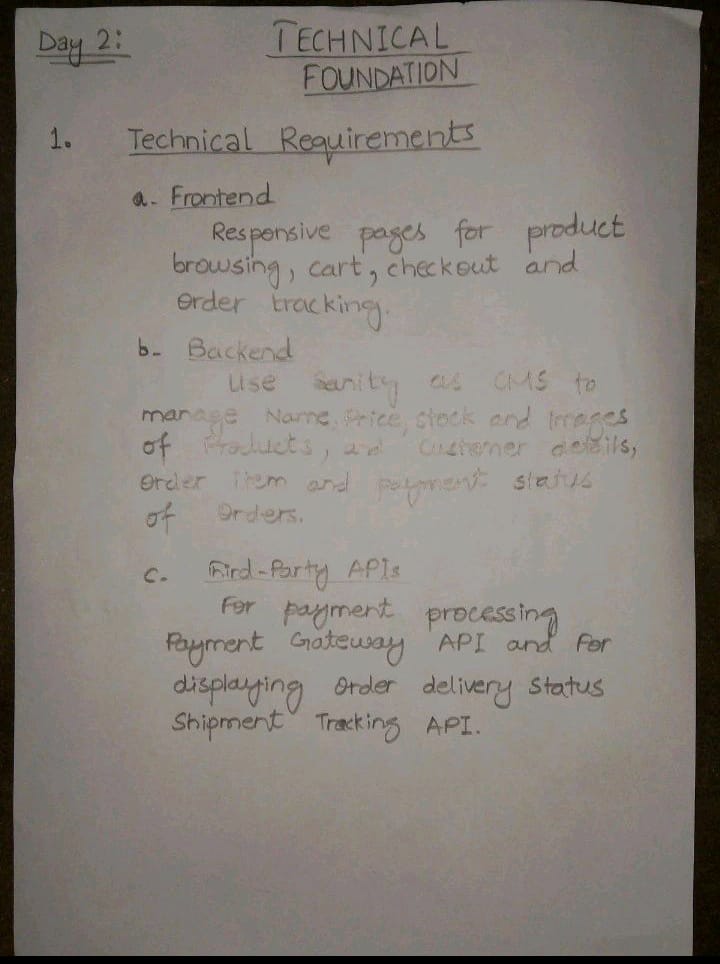 Day 2:
TECHNICAL
FOUNDATION
1. Technical Requirements
a. Frontend
Responsive pages for product
browsing, cart, checkout and
order tracking.
b. Backend
Use Sanity as CMS to
manage Name, Price, stock and Images
of Products, and Customer details,
order item and payment status
of Orders.
c. Third-Party APIs
For payment processing
Payment Gateway API and For
displaying order delivery status
Shipment Tracking API.